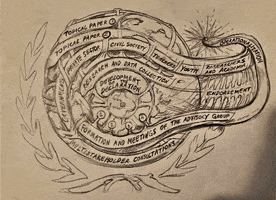 TOPICAL PAPER
TOPICAL PAPER
GOVERNMENTS
PRIVATE SECTOR
CIVIL SOCIETY
YOUTH
RESEARCHERS
AND ACADEMIA
OPERATIONALISATION
RESEARCH AND DATA COLLECTION
DEVELOPMENT
OF THE
DECLARATION
ENDORSEMENT
FORMATION AND MEETINGS OF THE ADVISORY GROUP
MULTISTAKEHOLDER CONSULTATIONS